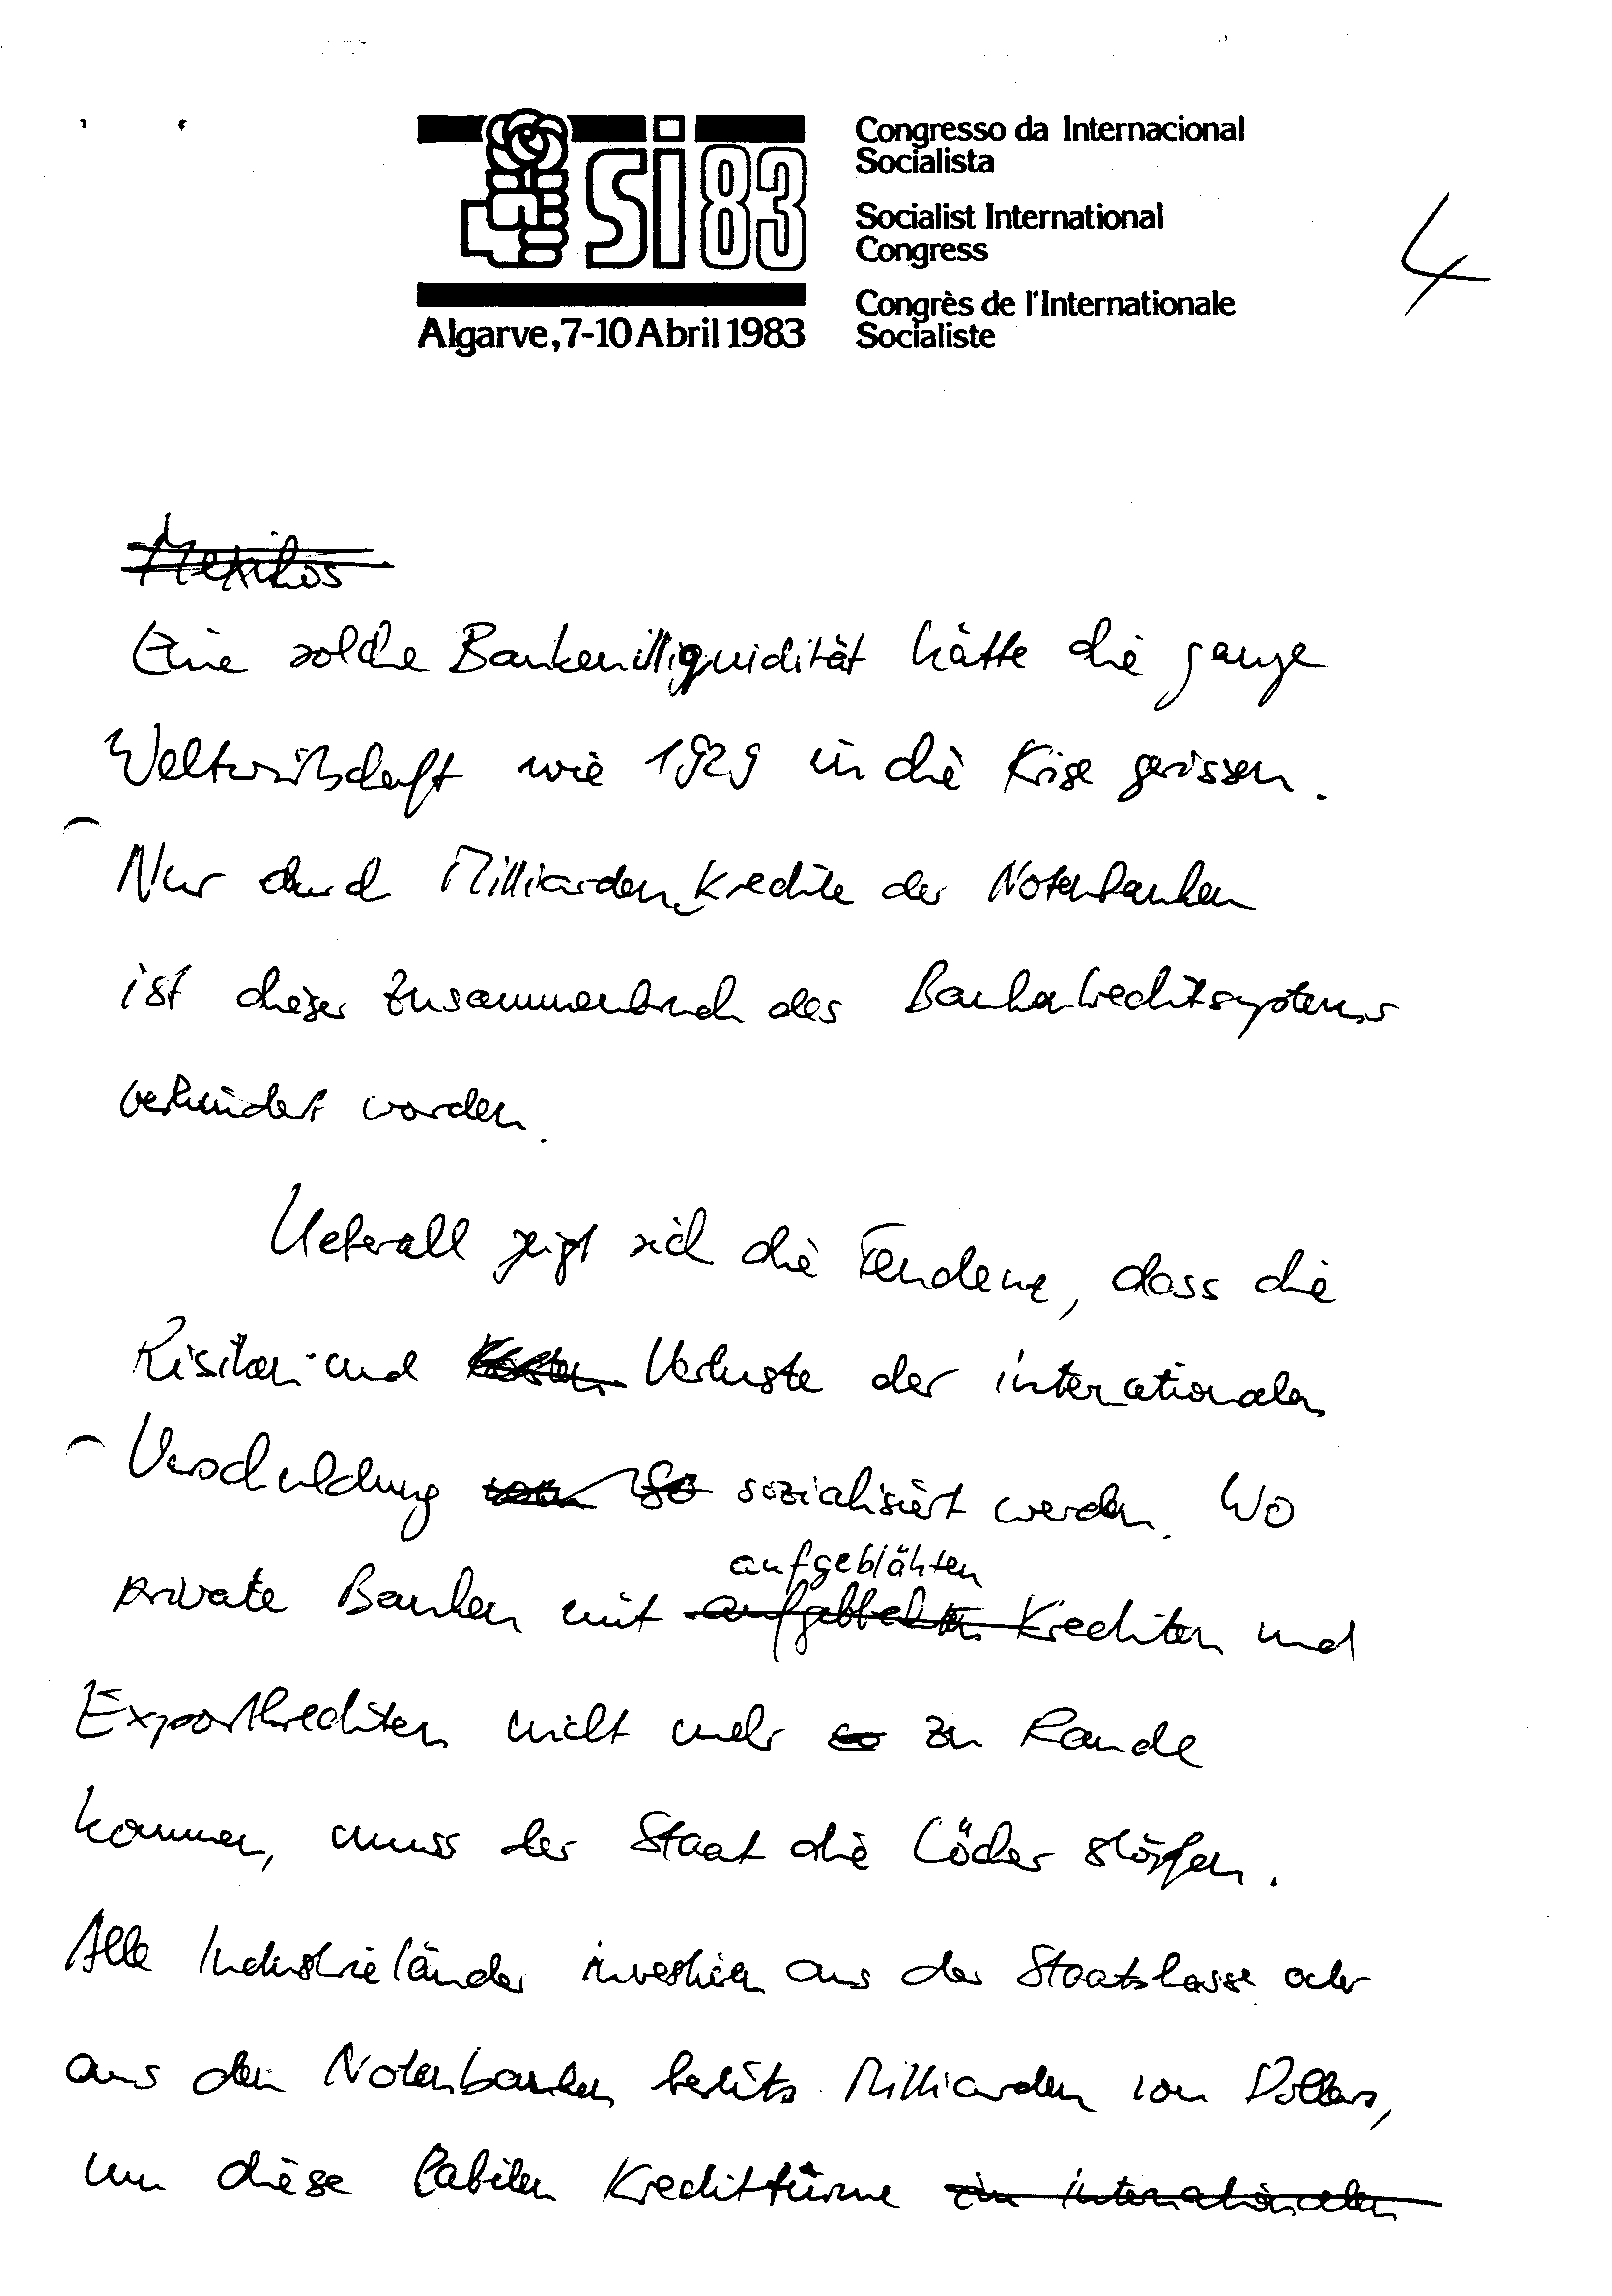 si 83
Algarve, 7-10 Abril 1983
Congresso da Internacional
Socialista
Socialist International
Congress
Congrès de l'Internationale
Socialiste
4
Mexikos
Eine solche Bankenilliquidität hätte die ganze
Weltwirtschaft wie 1929 in die Krise gerissen.
Nur durch Milliardenkredite der Notenbanken
ist dieser Zusammenbruch des Bankenkreditsystems
verhindert worden.
Ueberall zeigt sich die Tendenz, dass die
Risiken und Kosten Verluste der internationalen
Verschuldung von So sozialisiert werden. Wo
aufgeblähten
private Banken mit Krediten und
Exportkrediten nicht mehr so zu Rande
kommen, muss der Staat die Löcher stopfen.
Alle Industrieländer investieren aus der Staatskasse oder
aus den Notenbanken bereits Milliarden von Dollars,
um diese labilen Kredittürme im internationalen